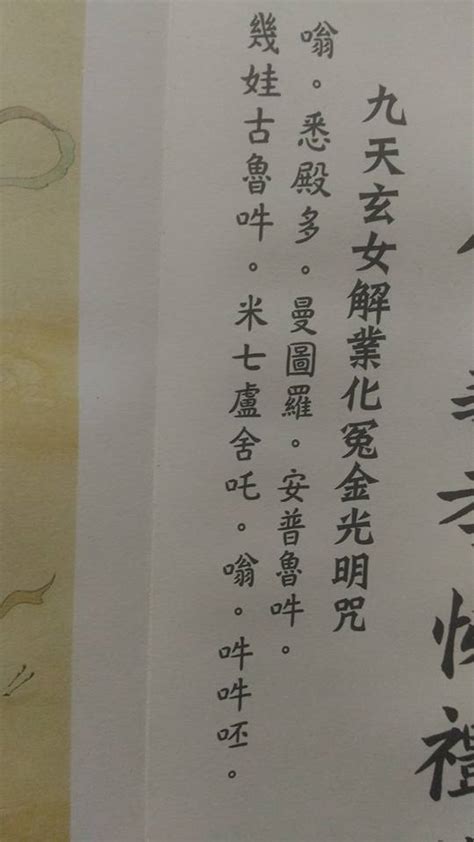 九天玄女解業化冤金光明咒
嗡。悉殿多。曼圖羅。安普魯吽。
幾娃古魯吽。米七盧舍吒。嗡。吽吽呸。